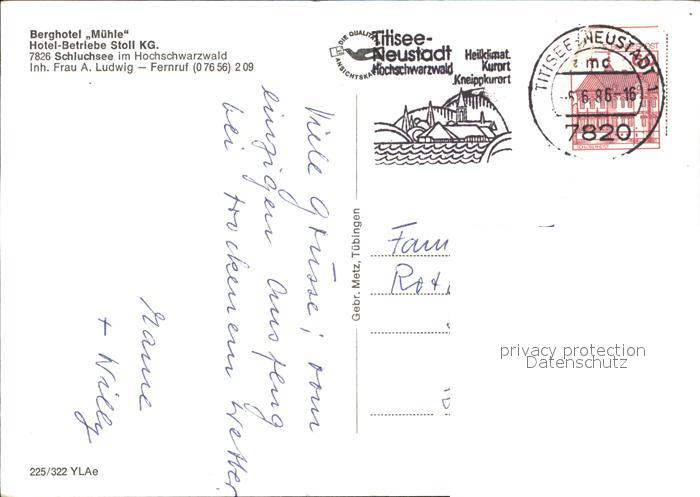 Berghotel „Mühle“
Hotel-Betriebe Stoll KG.
7826 Schluchsee im Hochschwarzwald
Inh. Frau A. Ludwig — Fernruf (0 76 56) 2 09
DIE QUALITÄTS
ANSICHTSKA
Titisee-
Neustadt
Hochschwarzwald
Heilklimat.
Kurort
Kneippkurort
TITISEE-NEUSTADT 1
mc
6.86-16
7820
Viele Grüsse, vom
einzigen Ausflug
bei trockenem Wetter
+ Willy
Gebr. Metz, Tübingen
Fam
Rot
privacy protection
Datenschutz
225/322 YLAe